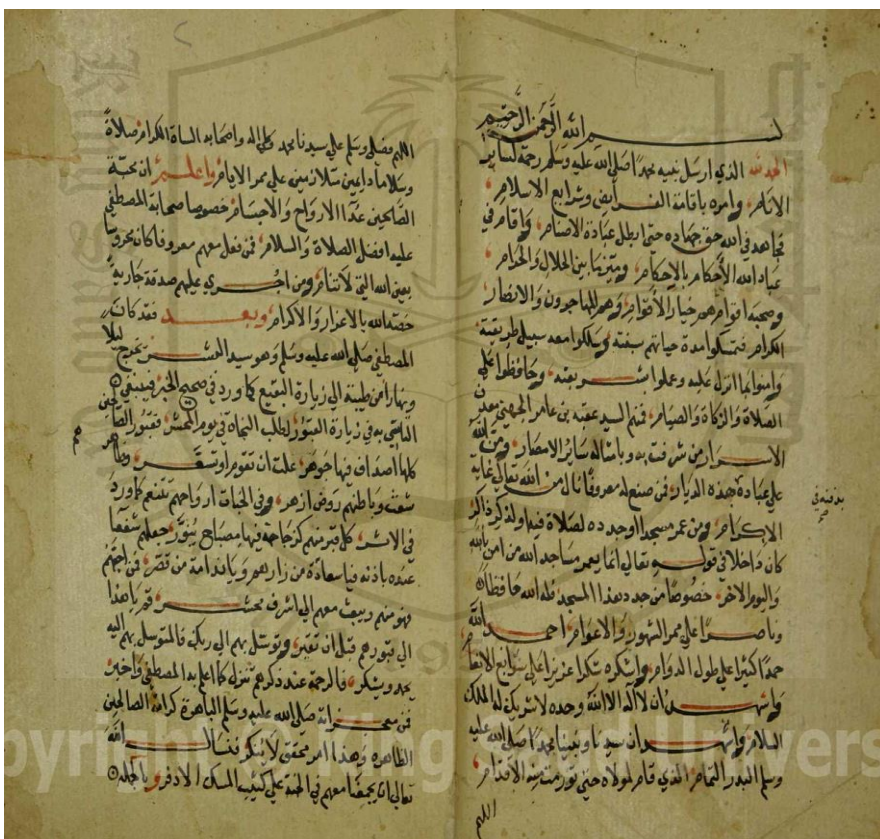 بسم الله الرحمن الرحيم
الحمد لله الذي ارسل نبيه محمدا صلى الله عليه وسلم رحمة لساير
الانام، وامره باقامة الفرايض وشرايع الاسلام،
فجاهد في الله حق جهاده حتى ابطل عبادة الاصنام، واقام في
عباد الله الأحكام بالاحكام، وميز بنا بين الحلال والحرام،
وصحبه اقوام هم خيار الأقوام، وهم المهاجرون والانصار
الكرام، فتمسكوا مدة حياتهم بسنته وسلكوا معه سبيل طريقته
وامنوا بما انزل عليه وعملوا بشريعته، وحافظوا على
الصلاة والزكاة والصيام، فمنهم السيد عقبة بن عامر الجهني معدن
الاسرار من شرفت به وبامثاله ساير الامصار، ومن الله
على عباده بهذه الديار، فمن صنع له معروفا نال من الله تعالى غاية
بدفنه في
الاكرام، ومن عمر مسجدا او جدده لصلاة فيه او لذكر فذاكر
كان داخلا في قوله تعالى انما يعمر مساجد الله من امن بالله
واليوم الاخر، خصوصا من جدد هذا المسجد فله الله حافظا
وناصرا على ممر الشهور والاعوام، احمد الله
حمدا كثيرا على طول الدوام، واشكره شكرا عزيزا على سوابغ الانعام
واشهد ان لا اله الا الله وحده لا شريك له الملك
السلام، واشهد ان سيدنا ونبينا محمدا صلى الله عليه
وسلم البدر التمام، الذي قام لمولاه حتى تورمت منه الاقدام،
اللهم
اللهم فصلي وسلم على سيدنا محمد وعلى اله واصحابه السادة الكرام، صلاة
وسلاما دايمين متلازمين على ممر الايام، واعلم ان محبة
الصالحين غذا الارواح والاجسام، خصوصا صحابة المصطفى
عليه افضل الصلاة والسلام، فمن فعل معهم معروفا كان محروسا
بعين الله التي لا تنام، ومن اجرى عليهم صدقة جارية
خصه الله بالاعزاز والاكرام، وبعد فقد كان
المصطفى صلى الله عليه وسلم وهو سيد البشر يخرج ليلا
ونهارا من طيبة الى زيارة البقيع كما ورد في صحيح الخبر فينبغي
التاسي به في زيارة القبور لطلب النجاة في يوم المحشر، فقبور الصالحين
كلها اصداف فيها جوهر، علت ان تقوم او تسعر، وظاهر
هم
شعث وباطنهم روض ازهر، وفي الجنات ارواحهم تتنعم كما ورد
في الاثر، كل قبر منهم كزجاجة فيها مصباح ينور، جعلهم شفعا
عنده باذنه فيا سعادة من زارهم ويا ندامة من قصر، فمن احبهم
فهو منهم ويبعث معهم الى اشرف محشر، قم يا هذا
الى قبورهم قبل ان تقبر، وتوسل بهم الى ربك فالمتوسل بهم اليه
يحمد ويشكر، فالرحمة عند ذكرهم تنزل كما اعلم به المصطفى واخبر،
فمن معجزاته صلى الله عليه وسلم الباهرة كرامة الصالحين
الطاهرة وهذا امر محقق لا ينكر فنسال الله
تعالى ان يجمعنا معهم في الجنة على كثيب المسك الاذفر وبالجملة